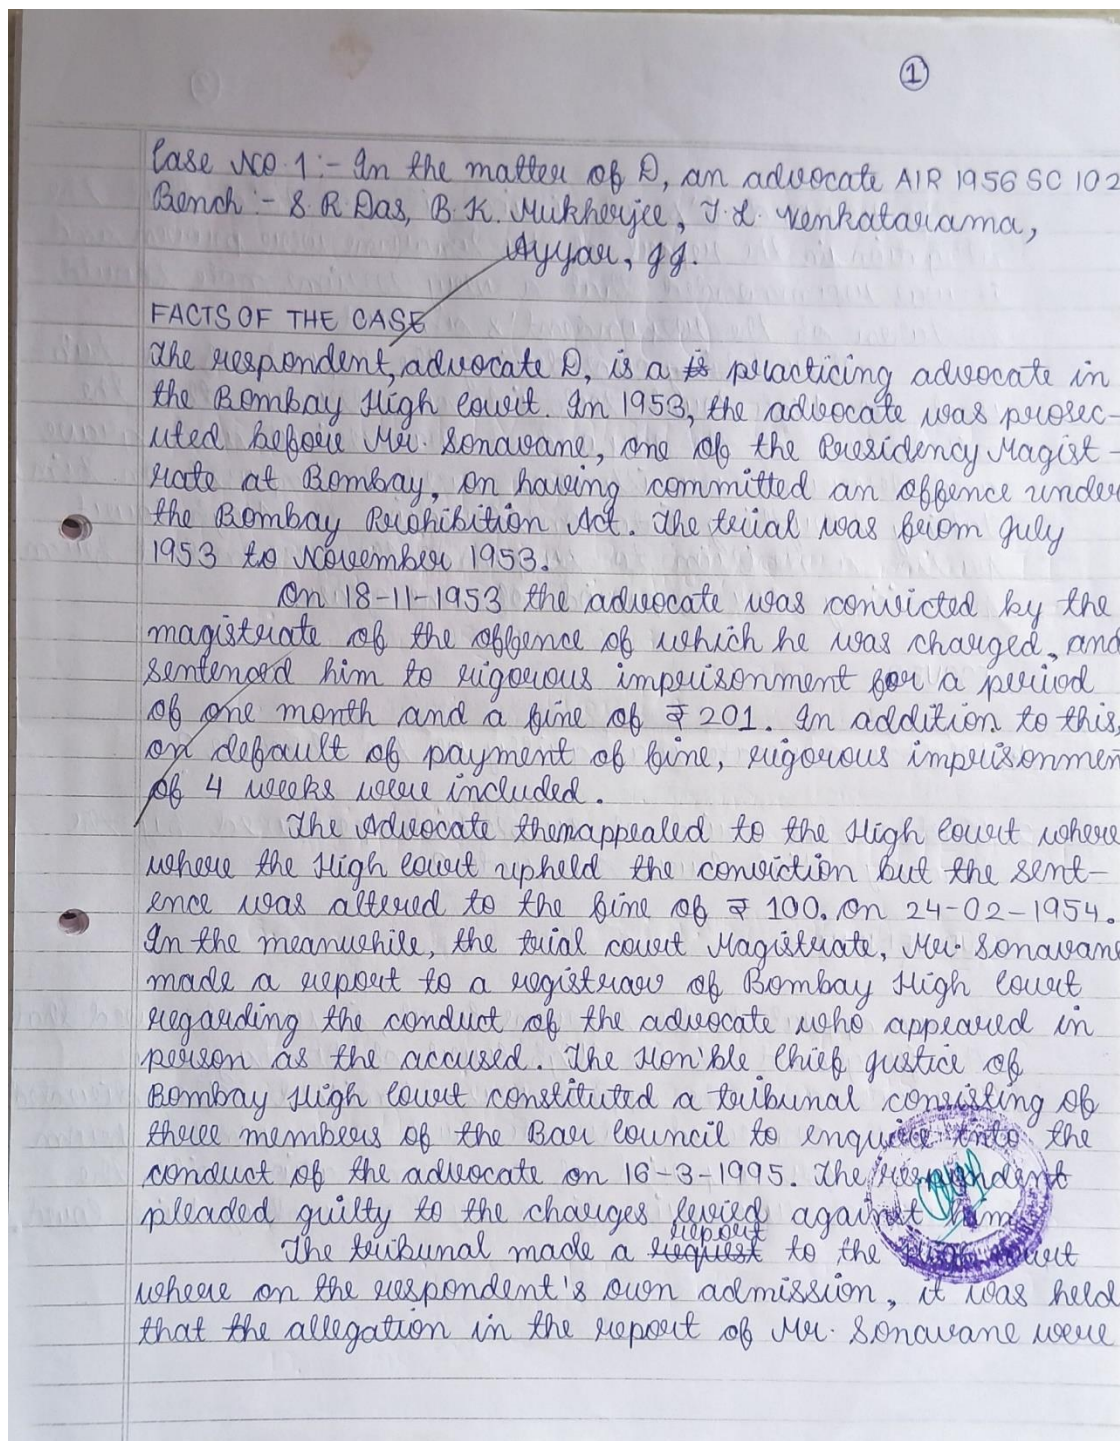 1
Case NO. 1:- In the matter of D, an advocate AIR 1956 SC 102
Bench :- S. R Das, B. K. Mukherjee, T. L. Venkatarama,
Ayyar, JJ.
FACTS OF THE CASE
The respondent, advocate D, is a is practicing advocate in
the Bombay High Court. In 1953, the advocate was prosec-
uted before Mr. Sonavane, one of the Presidency Magist-
rate at Bombay, on having committed an offence under
the Bombay Prohibition Act. The trial was from July
1953 to November 1953.
On 18-11-1953 the advocate was convicted by the
magistrate of the offence of which he was charged, and
sentenced him to rigorous imprisonment for a period
of one month and a fine of ₹ 201. In addition to this,
on default of payment of fine, rigorous imprisonmen
of 4 weeks were included.
The Advocate then appealed to the High Court where
where the High Court upheld the conviction but the sent-
ence was altered to the fine of ₹ 100. On 24-02-1954.
In the meanwhile, the trial court Magistrate, Mr. Sonavane
made a report to a registrar of Bombay High Court
regarding the conduct of the advocate who appeared in
person as the accused. The Hon'ble Chief Justice of
Bombay High Court constituted a tribunal consisting of
three members of the Bar Council to enquire into the
conduct of the advocate on 16-3-1995. The respondent
pleaded guilty to the charges levied against him
report
The tribunal made a request to the High Court
where on the respondent's own admission, it was held
that the allegation in the report of Mr. Sonavane were